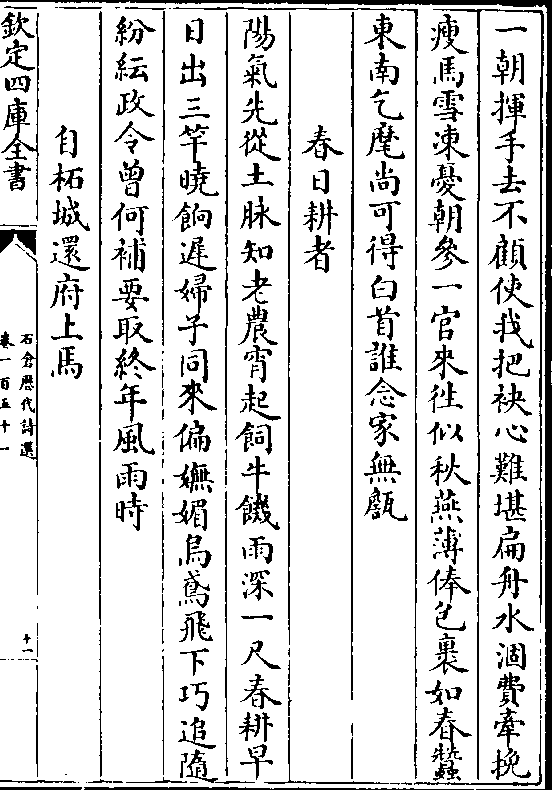 一朝揮手去不顧使我把袂心難堪扁舟水涸費牽挽
瘦馬雪凍憂朝參一官來徃似秋燕薄俸包裹如春蠶
東南乞麾尚可得白首誰念家無甔
春日耕者
陽氣先從土脉知老農宵起飼牛饑雨深一尺春耕早
日出三竿曉餉遲婦子同來偏嫵媚烏鳶飛下巧追隨
紛紜政令曾何補要取終年風雨時
自柘城還府上馬
欽定四庫全書
石倉歴代詩選
卷一百五十一
十一